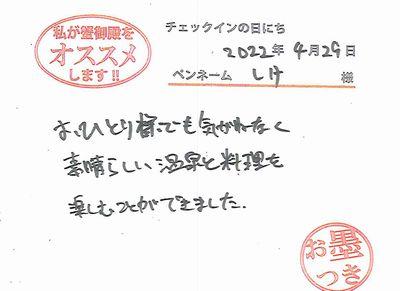 私が蟹御殿を
オススメ
します!!
チェックインの日にち
2022年4月29日
ペンネーム しけ 様
お、ひとり様でも気がねなく
素晴らしい温泉と料理を
楽しむことができました.
お墨
つき